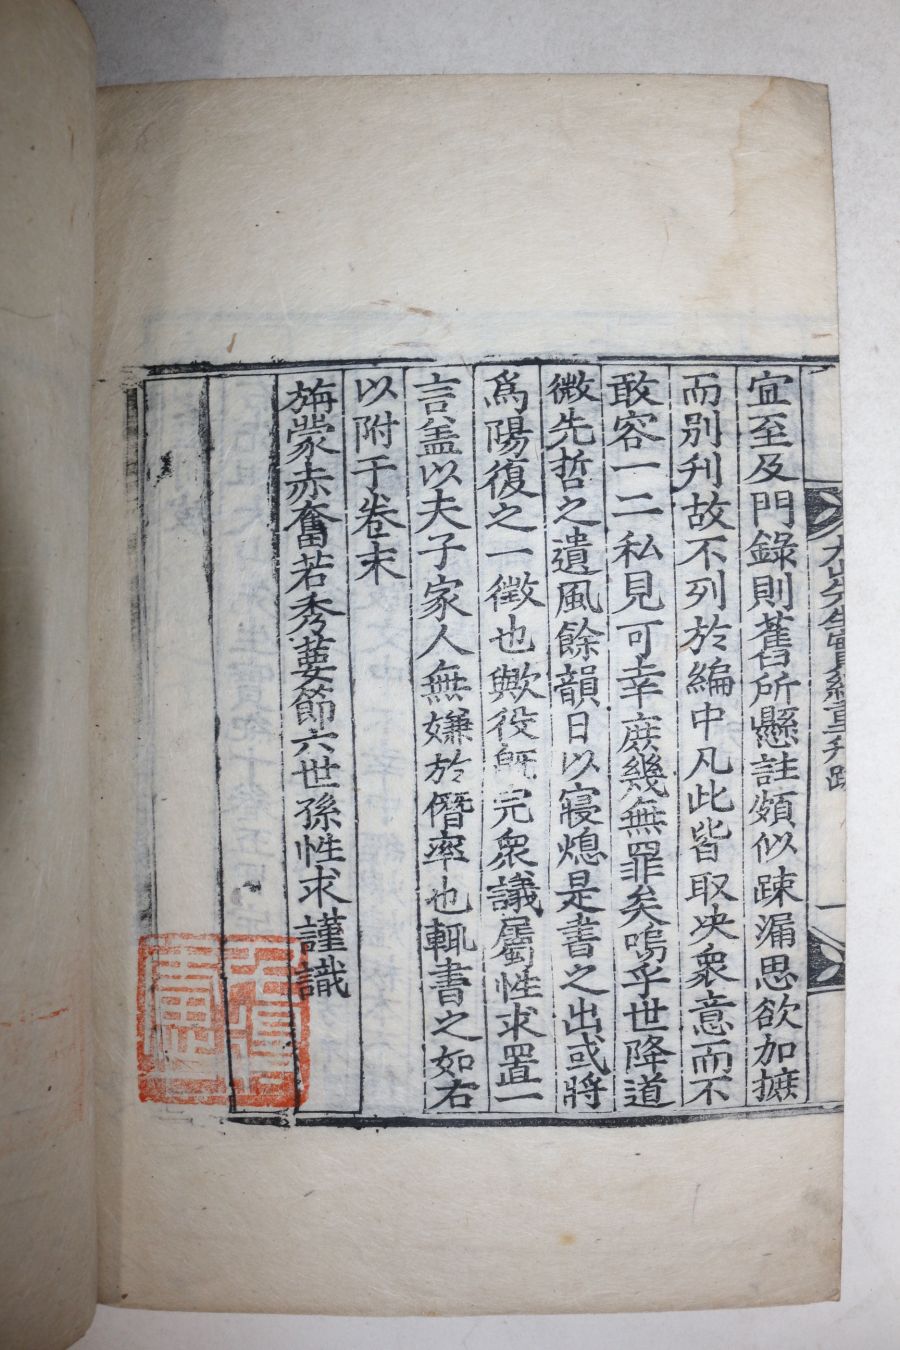 宜至及門錄則舊所懸註頗似踈漏思欲加摭
而別刋故不列於編中凡此皆取决衆意而不
敢容一二私見可幸庶幾無罪矣嗚乎世降道
微先哲之遺風餘韻日以寢熄是書之出或將
爲陽復之一徵也歟役旣完衆議屬性求置一
言盖以夫子家人無嫌於僭率也輒書之如右
以附于卷末
旃蒙赤奮若秀葽節六世孫性求謹識
大山先生實紀重刋跋
一